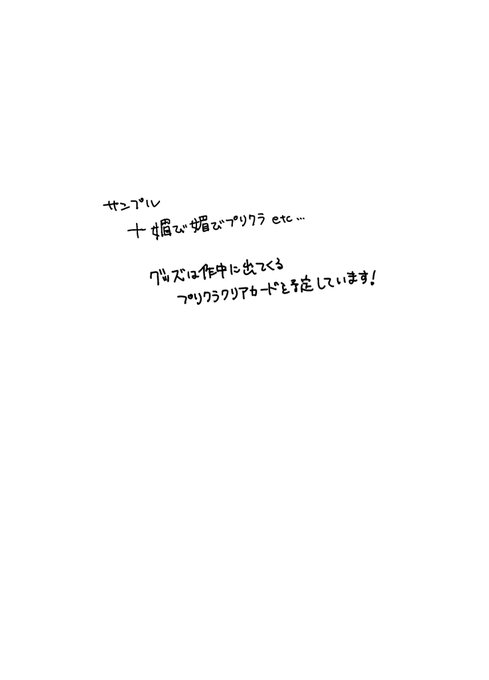 サンプル
＋媚び媚びプリクラ etc…
グッズは作中に出てくる
プリクラクリアカードを予定しています!